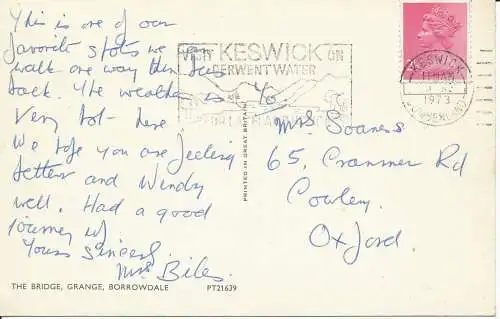 This is one of our
favorite spots we can
walk one way then bus
back. The weather is
Very hot - here
We hope you are feeling
better and Windy
well. Had a good
journey up
Yours Sincerely
Mrs Biles.
THE BRIDGE, GRANGE, BORROWDALE PT21639
PRINTED IN GREAT BRITAIN
VISIT KESWICK ON
DERWENTWATER
FOR LAKELAND
KESWICK
1973
CUMBERLAND
Mrs Soaness
65, Cranmer Rd
Cowley
Oxford.